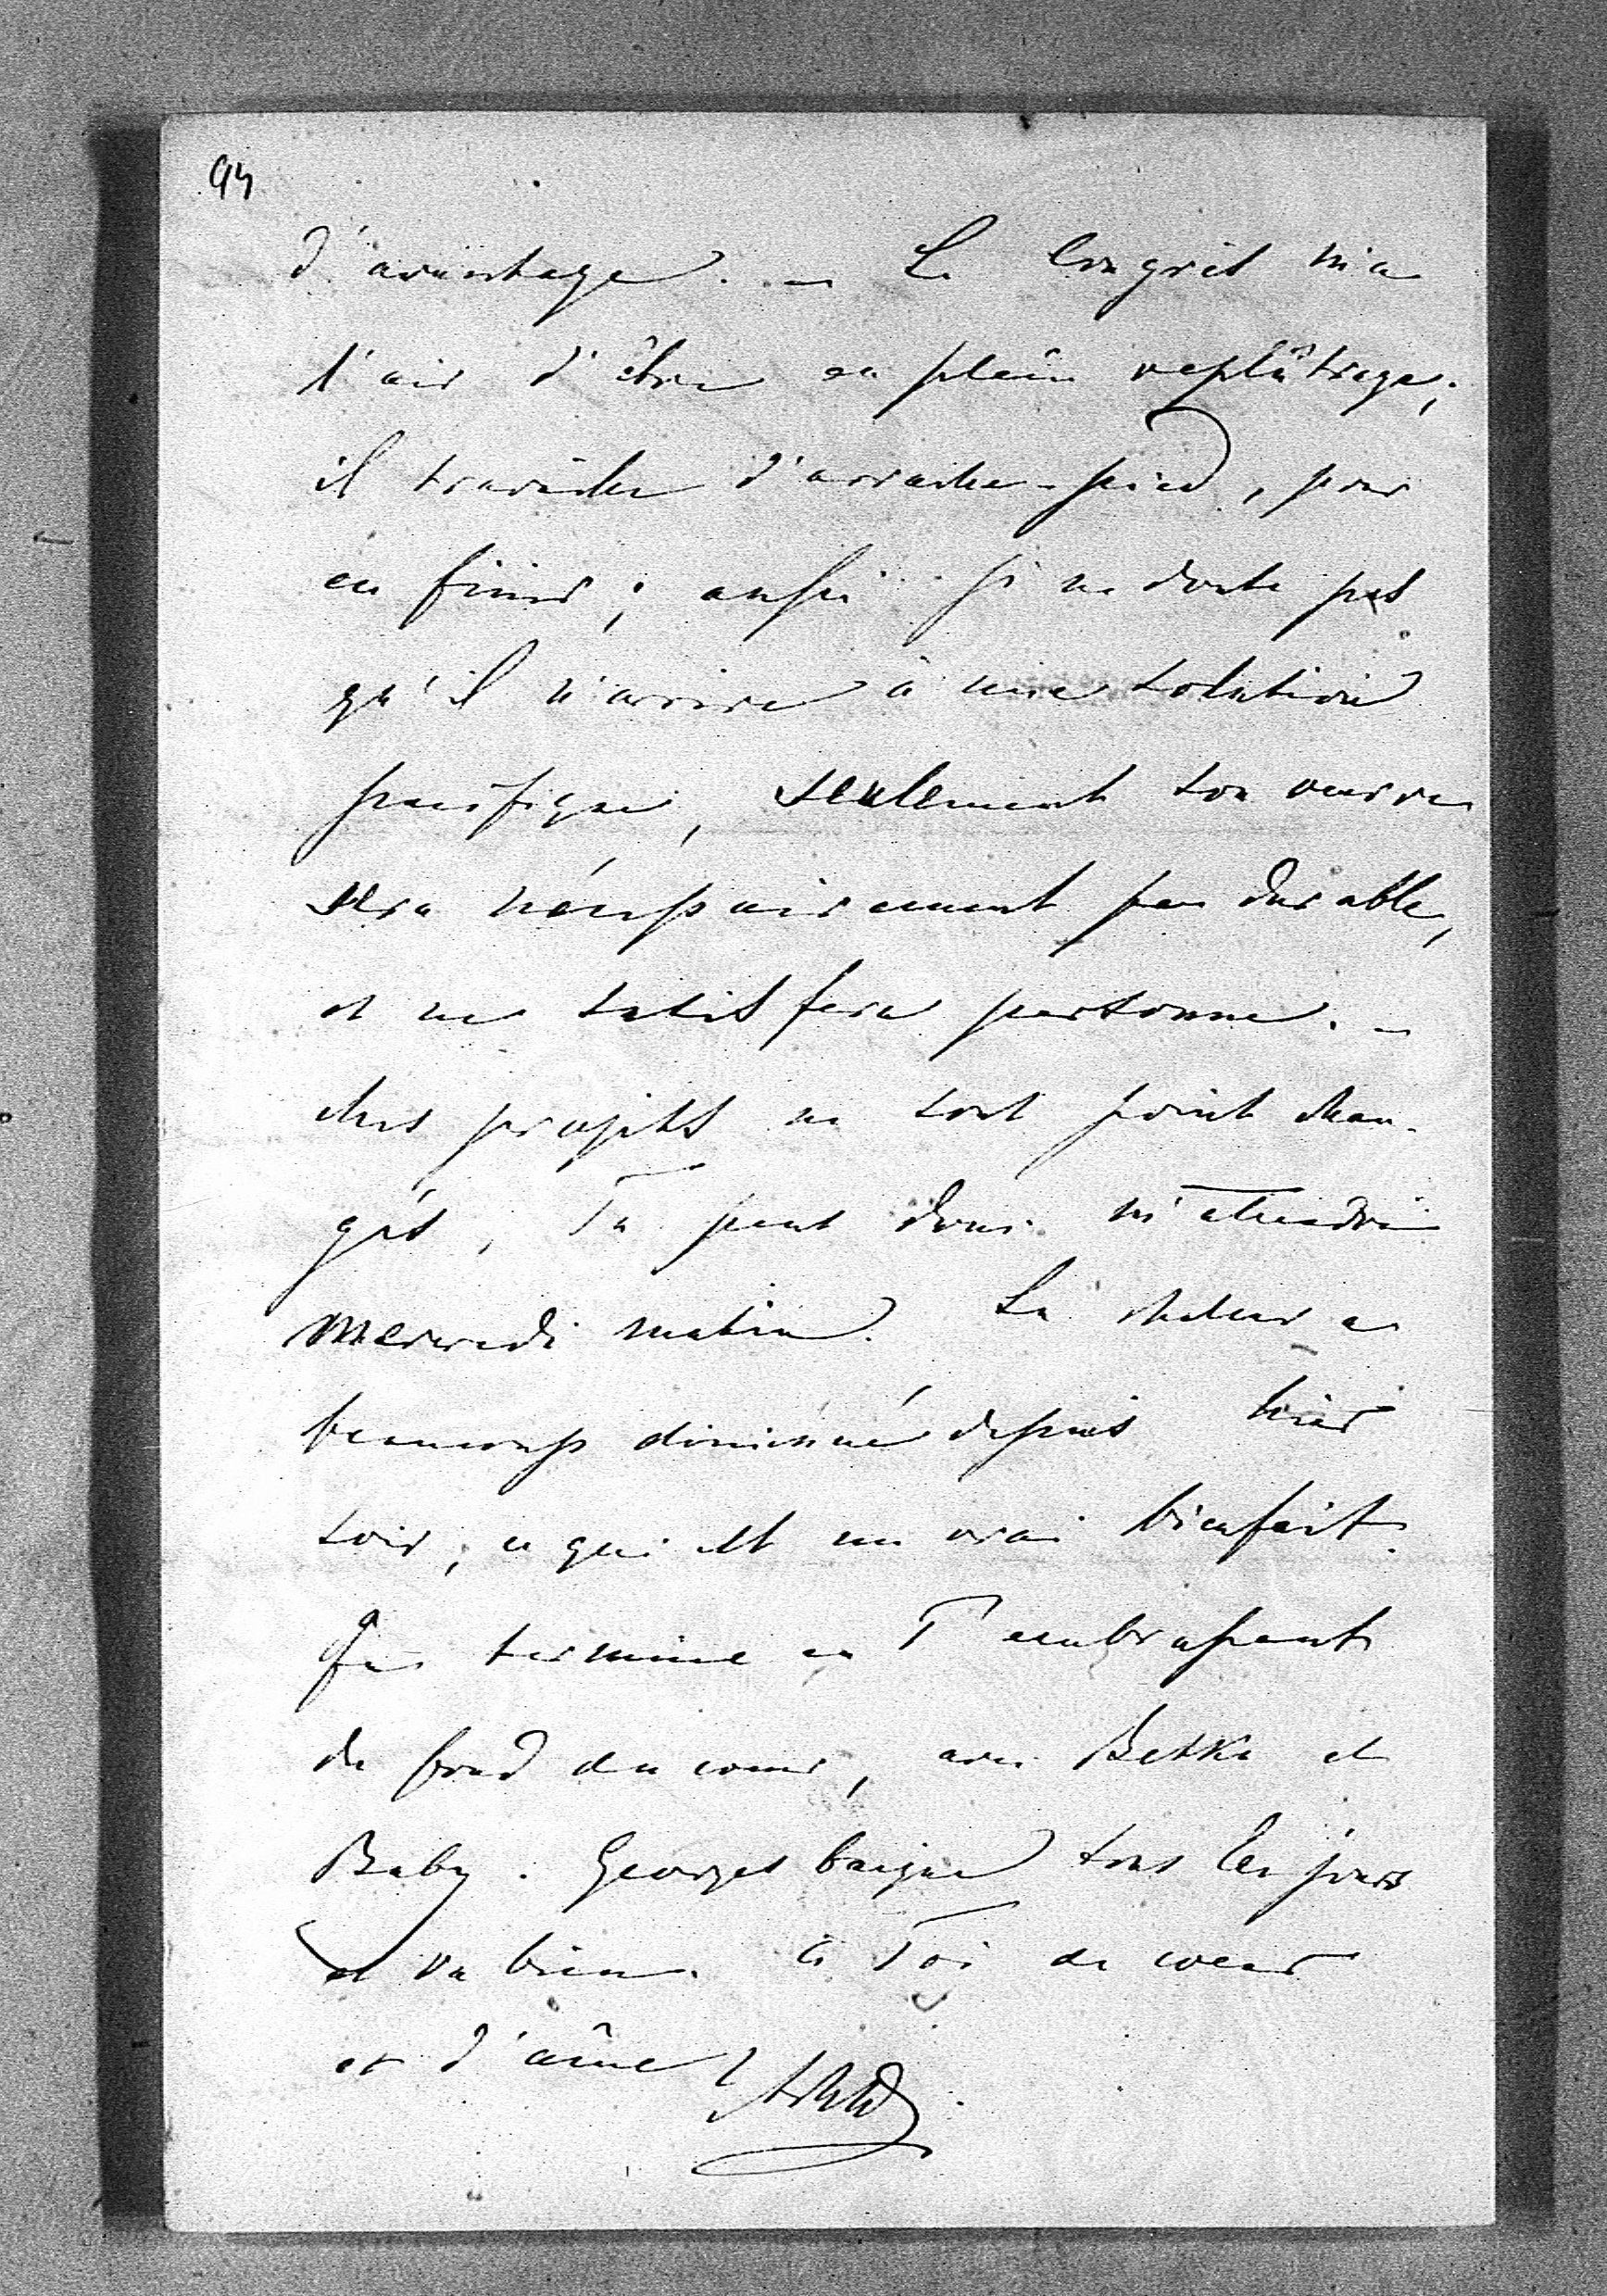 94
d'avantage. — Le Congrès m'a
l'air d'être en plein replâtrage;
il travaille d'arrache-pied, pour
en finir; aussi je ne doute pas
qu'il n'arrive à une solution
pacifique, seulement son œuvre
sera nécessairement peu durable,
et ne satisfera personne. —
Mes projets ne sont point chan-
gés, Tu peux donc m'attendre
mercredi matin. La chaleur a
beaucoup diminué depuis hier
soir, ce qui est un vrai bienfait.
Je termine en T'embrassant
du fond du cœur, avec Betsy et
Baby. Georges baigne tous les jours
et va bien. à Toi de cœur
et d'âme